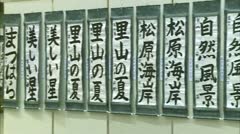 まつばら
美しい星
美しい星
里山の夏
里山の夏
松原海岸
松原海岸
自然風景
自然風景